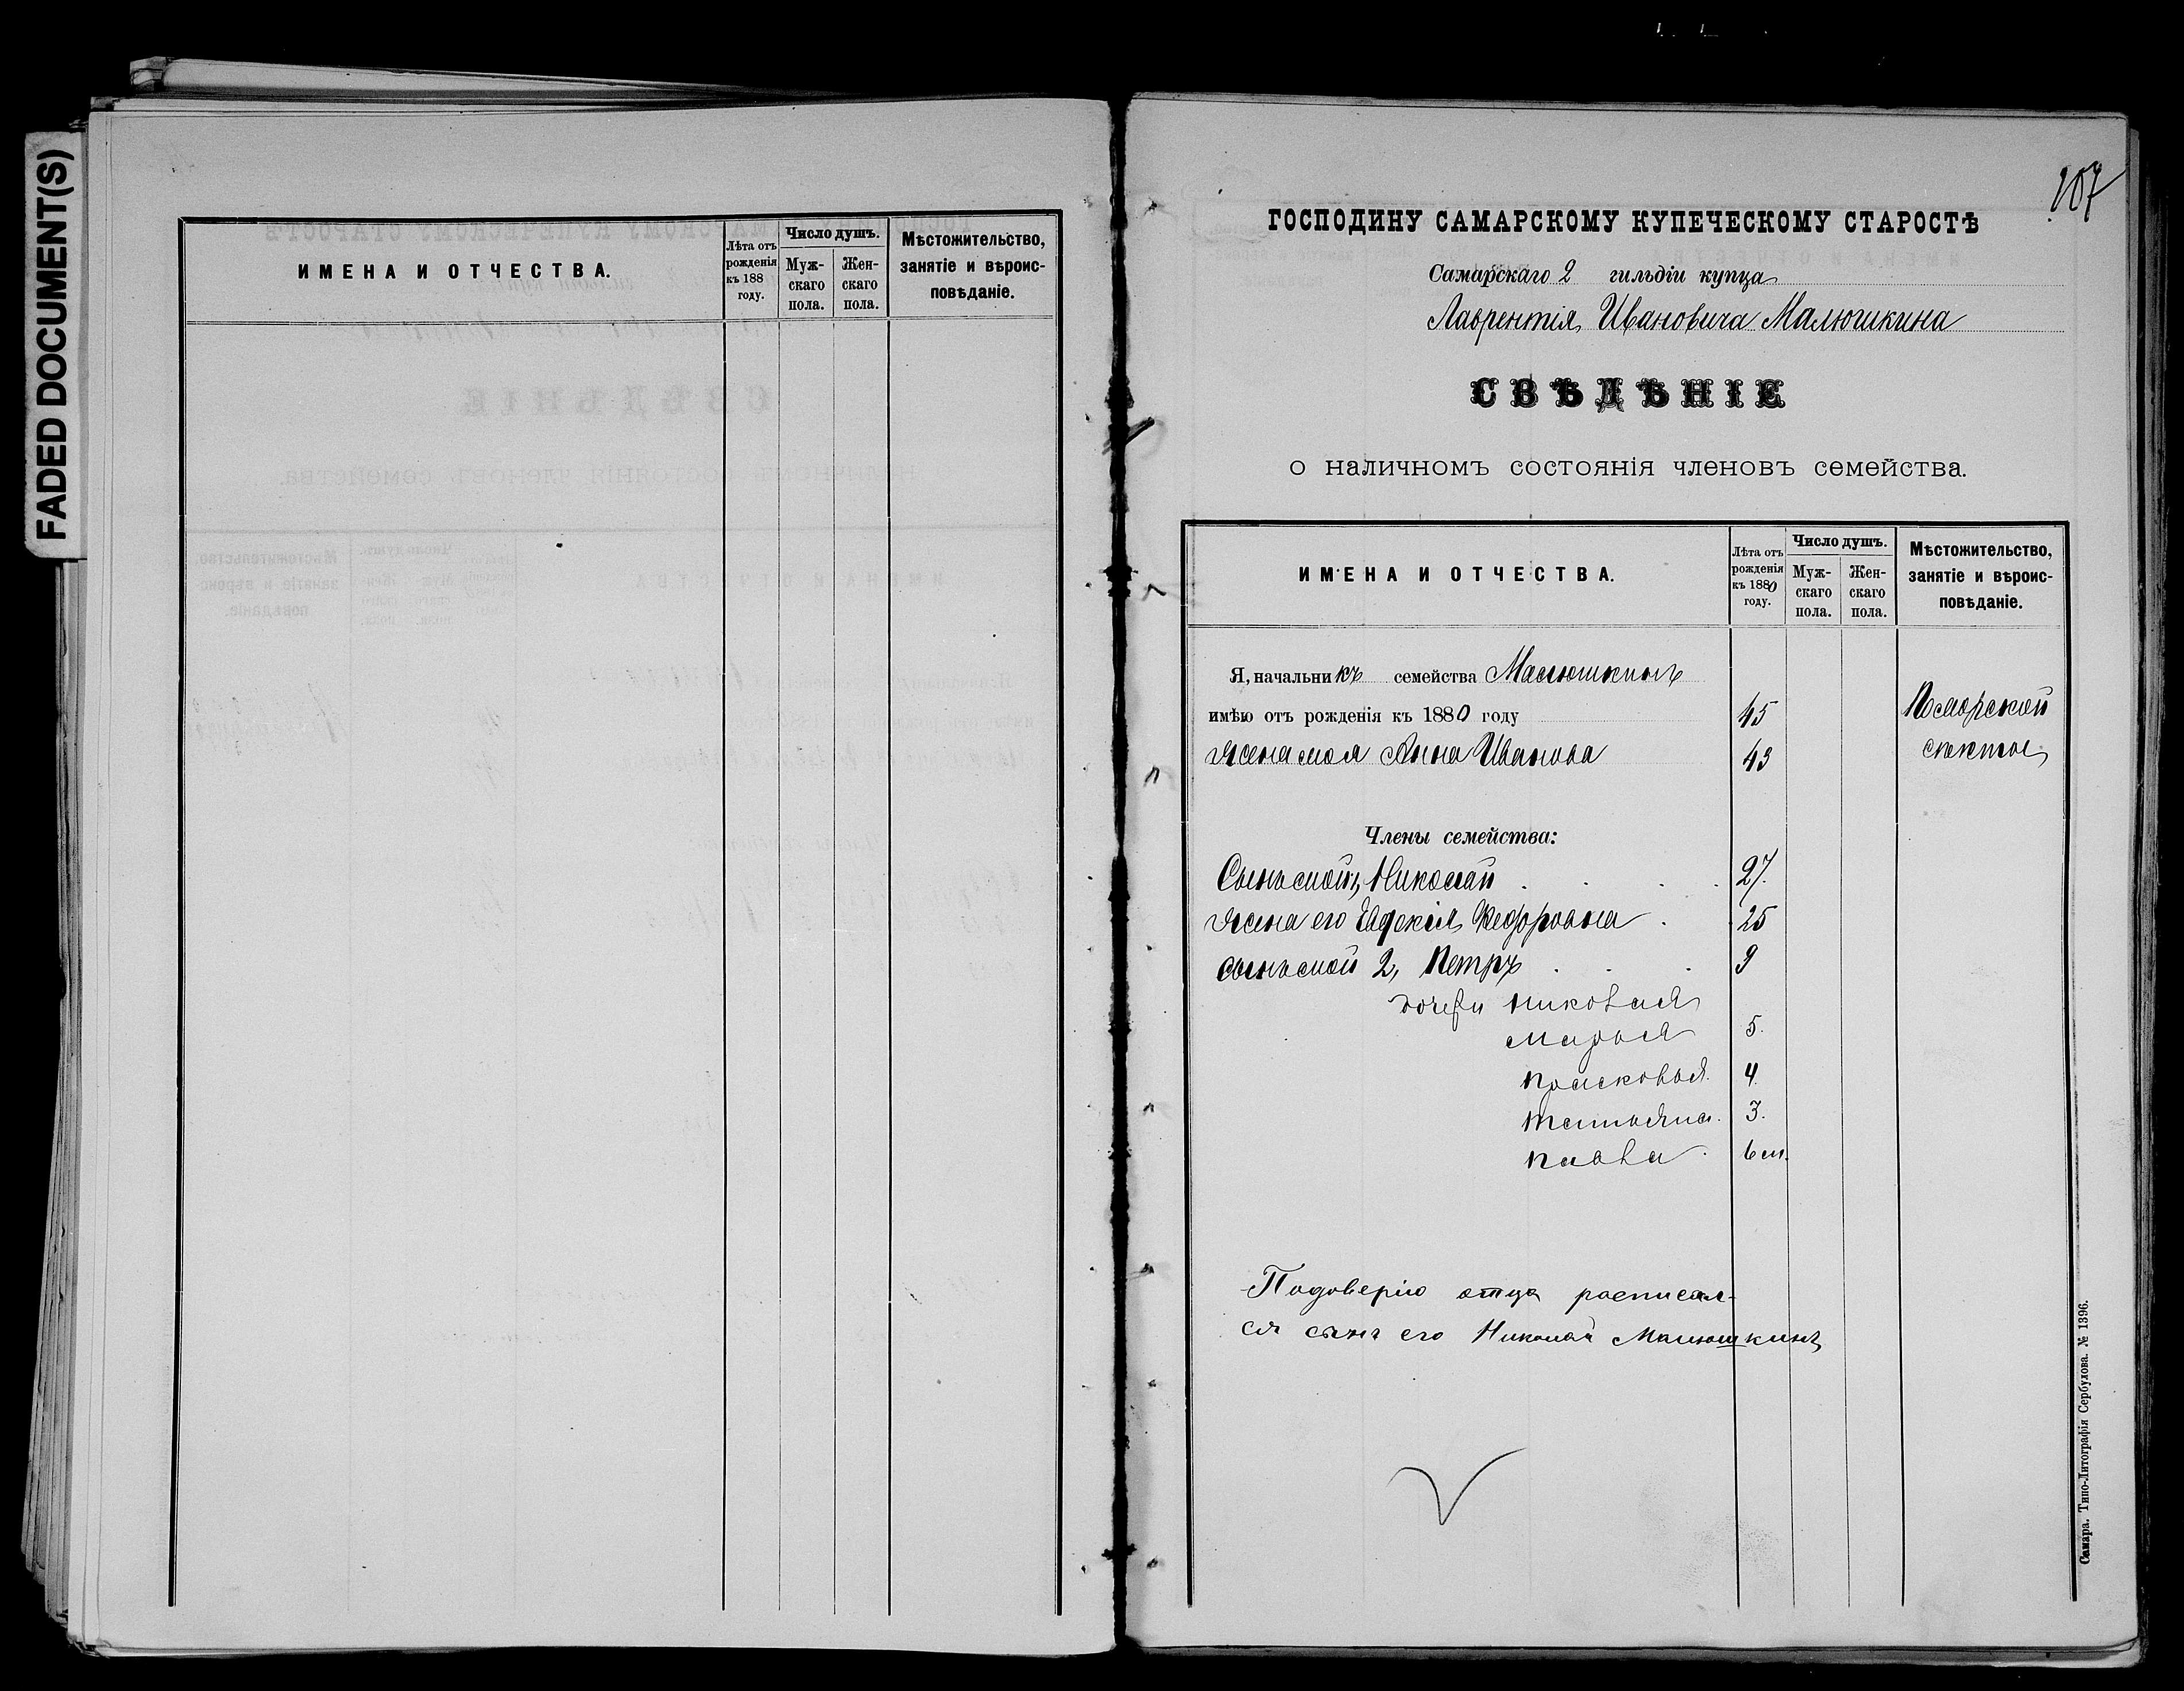 FADED DOCUMENT(S)
ИМЕНА И ОТЧЕСТВА.
Лѣта отъ рожденія къ 188 году.
Число душъ.
Мужскаго пола.
Женскаго пола.
Мѣстожительство, занятіе и вѣроисповѣданіе.
107
ГОСПОДИНУ САМАРСКОМУ КУПЕЧЕСКОМУ СТАРОСТѢ
Самарскаго 2 гильдіи купца
Лаврентія Ивановича Малюшкина
СВѢДѢНІЕ
о наличномъ состоянія членовъ семейства.
ИМЕНА И ОТЧЕСТВА.
Лѣта отъ рожденія къ 1880 году.
Число душъ.
Мужскаго пола.
Женскаго пола.
Мѣстожительство, занятіе и вѣроисповѣданіе.
Я, начальникъ семейства Малюшкинъ
имѣю отъ рожденія къ 1880 году 45 Поморской
Жена моя Анна Иванова 43 секты
Члены семейства:
Сынъ мой 1, Николай 27.
Жена его Евдокія Федоровна 25
Сынъ мой 2, Петръ 9
дочери Николая
Марья 5.
Прасковья. 4.
Татьяна. 3.
Павла. 6 м.
Подоверію отца росписал-
ся сынъ его Николай Малюшкинъ
Самара. Типо-Литографія Сербулова. № 1396.